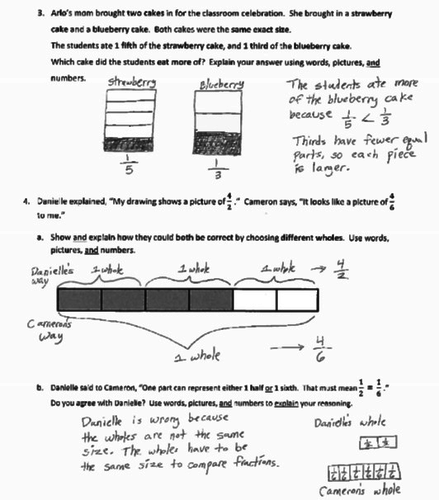 3. Arlo's mom brought two cakes in for the classroom celebration. She brought in a strawberry
cake and a blueberry cake. Both cakes were the same exact size.
The students ate 1 fifth of the strawberry cake, and 1 third of the blueberry cake.
Which cake did the students eat more of? Explain your answer using words, pictures, and
numbers.
Strawberry
1/5
Blueberry
1/3
The students ate more
of the blueberry cake
because 1/5 < 1/3
Thirds have fewer equal
parts, so each piece
is larger.
4. Danielle explained, "My drawing shows a picture of 4/2." Cameron says, "It looks like a picture of 4/6
to me."
a. Show and explain how they could both be correct by choosing different wholes. Use words,
pictures, and numbers.
Danielle's way
1 whole 1 whole 1 whole → 4/2
Cameron's way
1 whole → 4/6
b. Danielle said to Cameron, "One part can represent either 1 half or 1 sixth. That must mean 1/2 = 1/6."
Do you agree with Danielle? Use words, pictures, and numbers to explain your reasoning.
Danielle is wrong because
the wholes are not the same
size. The wholes have to be
the same size to compare fractions.
Danielle's whole
1/2 1/2
1/6 1/6 1/6 1/6 1/6 1/6
Cameron's whole